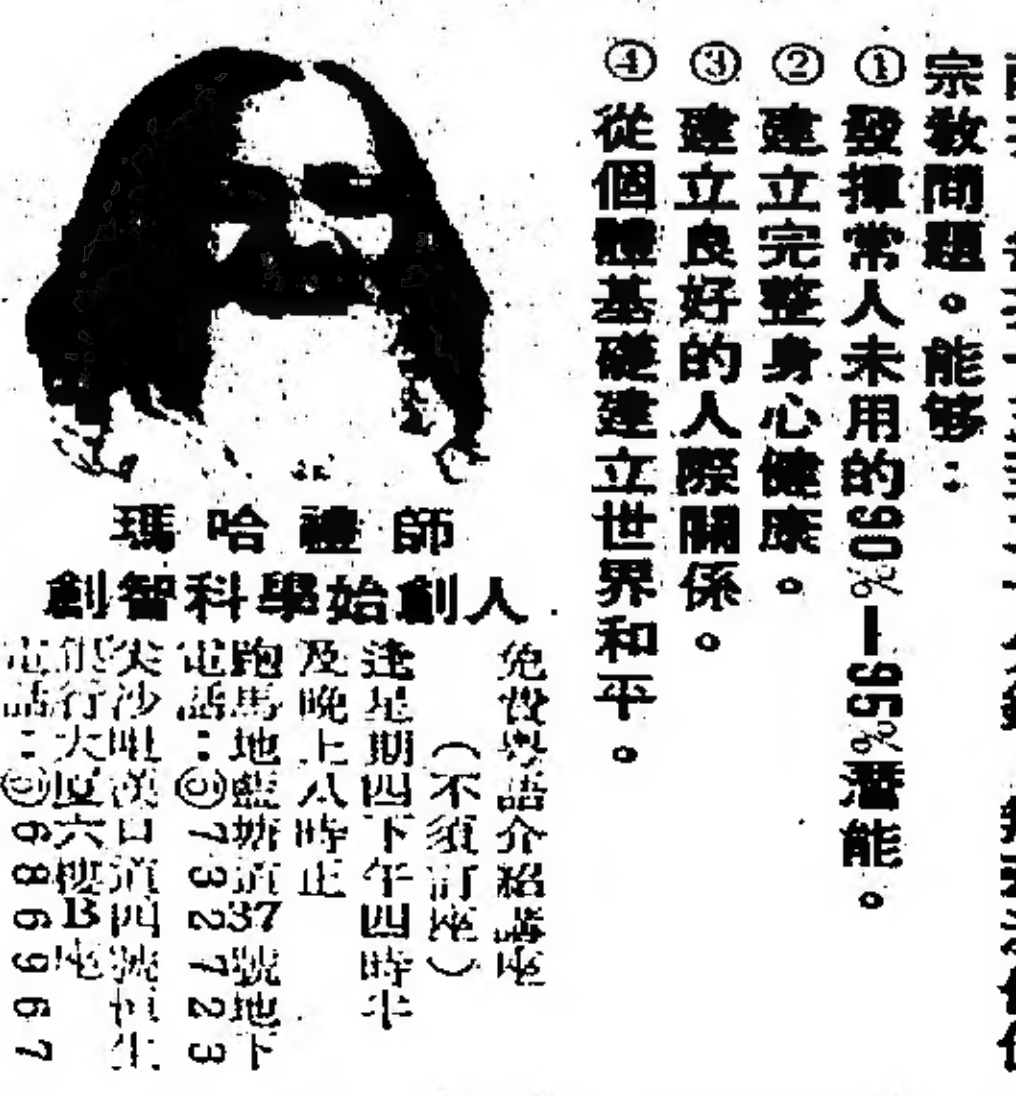 宗教問題。能够：
①發揮常人未用的90%—95%潛能。
②建立完整身心健康。
③建立良好的人際關係。
④從個體基礎建立世界和平。
瑪哈禮師
創智科學始創人
免費粵語介紹講座
（不須訂座）
逢星期四下午四時半
及晚上八時正
跑馬地藍塘道37號地下
電話：⑤732723
尖沙咀漢口道四號恒生
銀行大厦六樓B座
電話：③686967